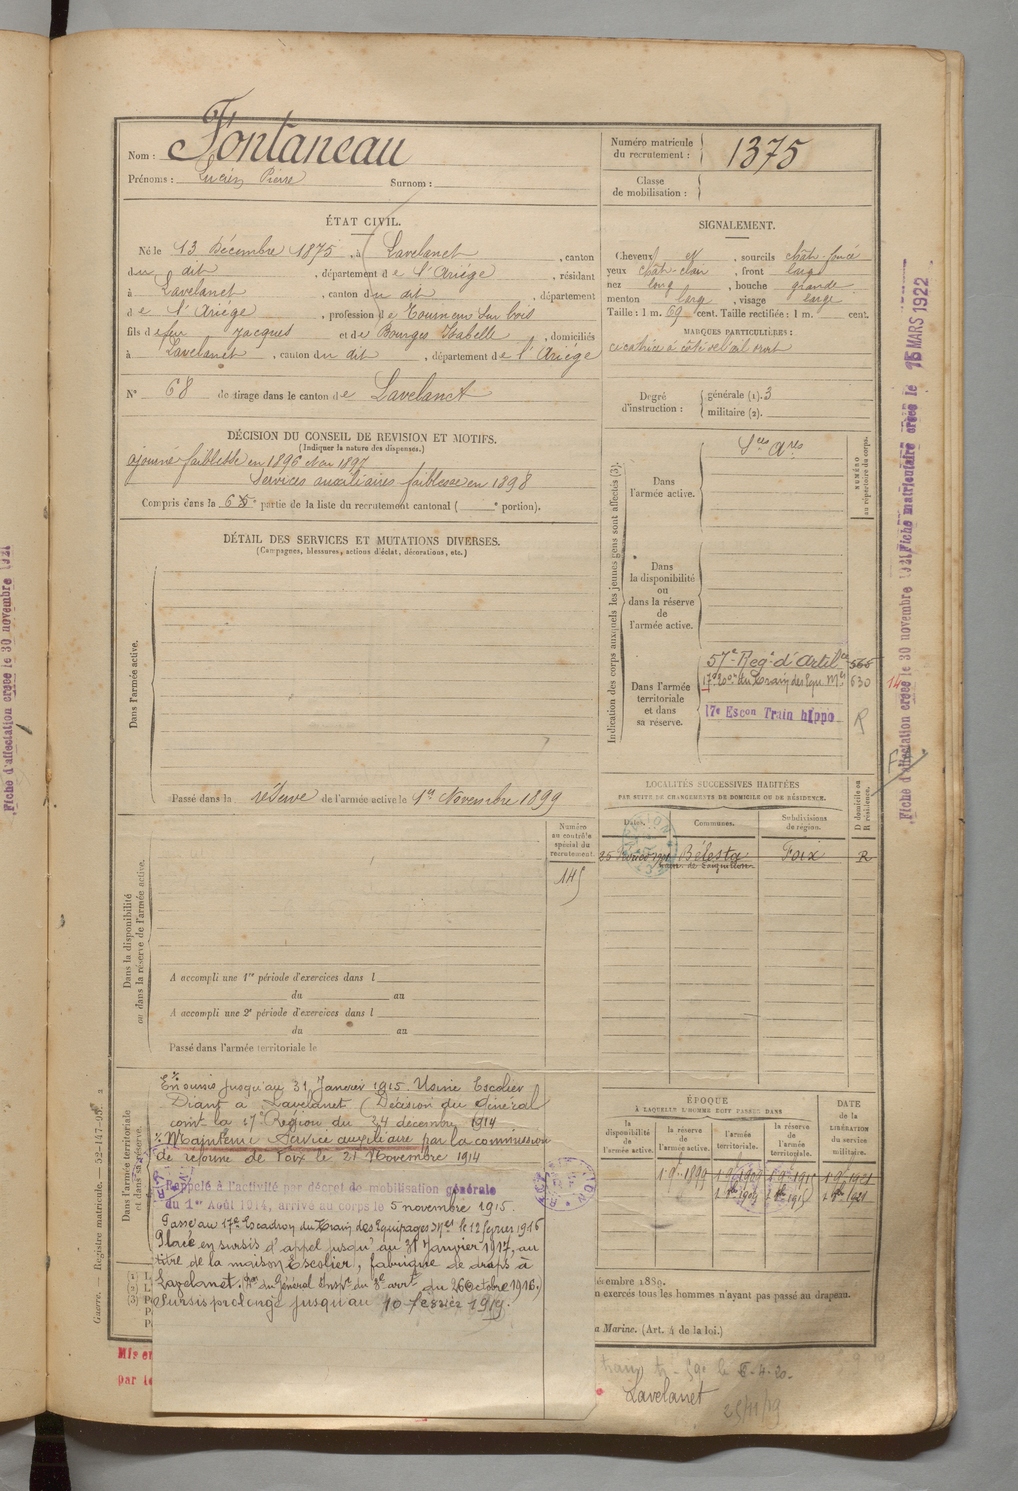 Nom : Fontaneau
Prénoms : Lucien Pierre Surnom :
Numéro matricule du recrutement : 1375
Classe de mobilisation :
ÉTAT CIVIL.
Né le 13 Décembre 1875, à Lavelanet, canton
du dit, département de l'Ariège, résidant
à Lavelanet, canton du dit, département
de l'Ariège, profession de Tourneur sur bois
fils de feu Jacques et de Bourges Isabelle, domiciliés
à Lavelanet, canton du dit, département de l'Ariège
N° 68 de tirage dans le canton de Lavelanet
SIGNALEMENT.
Cheveux et, sourcils chât-foncé
yeux chât-clair, front large
nez long, bouche grande
menton large, visage large
Taille : 1 m. 69 cent. Taille rectifiée : 1 m. cent.
MARQUES PARTICULIÈRES :
cicatrice à côté de l'œil droit
Degré d'instruction : générale (1). 3
militaire (2).
DÉCISION DU CONSEIL DE REVISION ET MOTIFS.
(Indiquer la nature des dispenses.)
ajourné faiblesse en 1896 et en 1897
Services auxiliaires faiblesse en 1898
Compris dans la 6 e partie de la liste du recrutement cantonal ( e portion).
DÉTAIL DES SERVICES ET MUTATIONS DIVERSES.
(Campagnes, blessures, actions d'éclat, décorations, etc.)
Dans l'armée active.
Passé dans la réserve de l'armée active le 1er Novembre 1899
Indication des corps auxquels les jeunes gens sont affectés (3).
NUMÉRO au répertoire du corps.
Dans l'armée active.
Sces Ares
Dans la disponibilité ou dans la réserve de l'armée active.
Dans l'armée territoriale et dans sa réserve.
57e Regt d'Artilrie 566
17e Eon du Train des Equ. Mres 630
17e Escon Train hippo R
LOCALITÉS SUCCESSIVES HABITÉES
PAR SUITE DE CHANGEMENTS DE DOMICILE OU DE RÉSIDENCE.
Dates. Communes. Subdivisions de région. D domicile ou R résidence.
Bélesta Foix R
Dans la disponibilité ou dans la réserve de l'armée active.
Numéro au contrôle spécial du recrutement.
145
A accompli une 1re période d'exercices dans l
du au
A accompli une 2e période d'exercices dans l
du au
Passé dans l'armée territoriale le
Dans l'armée territoriale et dans sa réserve.
En sursis jusqu'au 31 Janvier 1915. Usine Escolier
Diant à Lavelanet (Décision du Général
comt la 17e Région du 24 décembre 1914
Maintenu Service auxiliaire par la commission
de réforme de Foix le 21 Novembre 1914
Rappelé à l'activité par décret de mobilisation générale
du 1er Août 1914, arrivé au corps le 5 novembre 1915.
Passé au 17e Escadron du Train des Equipages Mres le 12 février 1916
Placé en sursis d'appel jusqu'au 31 Janvier 1917, au
titre de la maison Escolier, fabrique de draps à
Lavelanet. Don du Général Inspr du 8e arrt du 26 Octobre 1916.
Sursis prolongé jusqu'au 10 février 1919.
ÉPOQUE
À LAQUELLE L'HOMME DOIT PASSER DANS
la disponibilité de l'armée active. la réserve de l'armée active. l'armée territoriale. la réserve de l'armée territoriale. DATE de la LIBÉRATION du service militaire.
1 9bre 1899
écembre 1889.
n exercés tous les hommes n'ayant pas passé au drapeau.
a Marine. (Art. 4 de la loi.)
Guerre. — Registre matricule. 52-147-95.
Mis en
par le
Lavelanet
25/11/19
Fiche d'affectation créée le 30 novembre 1921
Fiche matriculaire créée le 15 MARS 1922
Fiche d'affectation créée le 30 novembre 1921